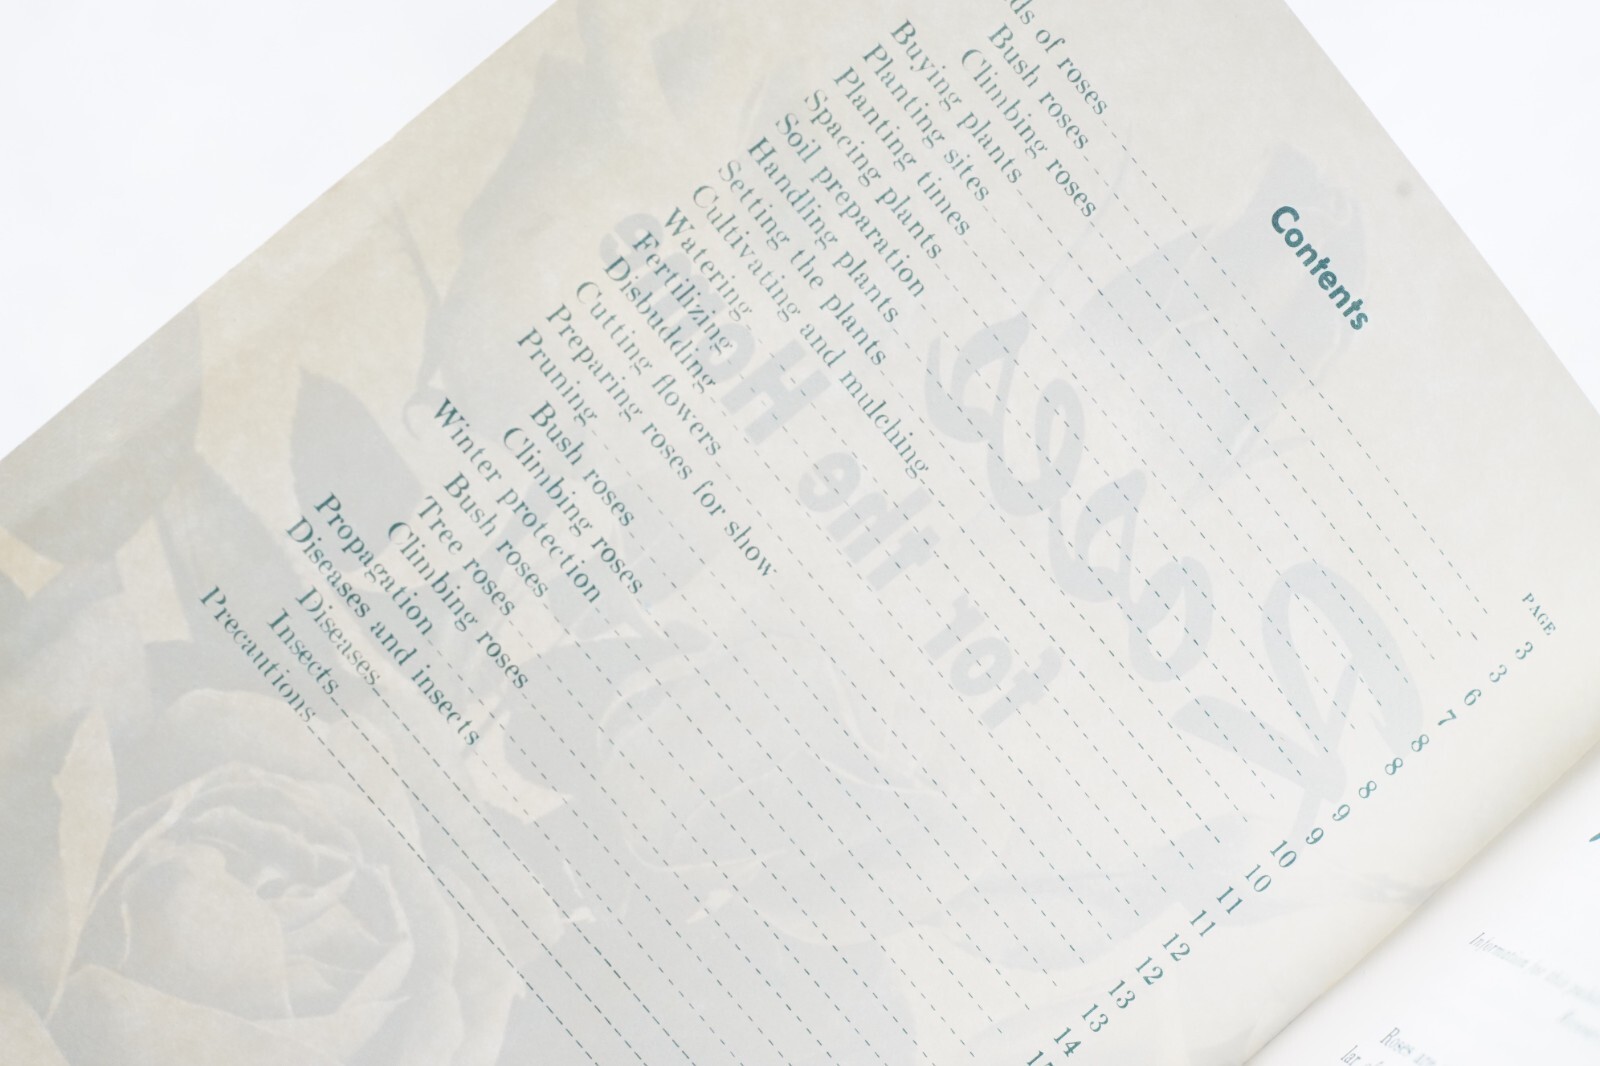 Contents
PAGE
ds of roses 3
Bush roses 3
Climbing roses 6
Buying plants 7
Planting sites 8
Planting times 8
Spacing plants 8
Soil preparation 9
Handling plants 9
Setting the plants 10
Cultivating and mulching 10
Watering 11
Fertilizing 11
Disbudding 12
Cutting flowers 12
Preparing roses for show 13
Pruning 13
Bush roses 14
Climbing roses
Winter protection
Bush roses
Tree roses
Climbing roses
Propagation
Diseases and insects
Diseases
Insects
Precautions
Roses
for the Home
Information in this
Roses are
lar